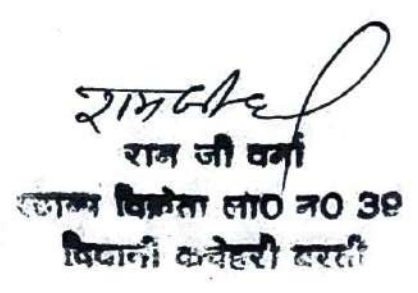 रामजी
राम जी वर्मा
स्टाम्प विक्रेता ला0 न0 39
दिवानी कचेहरी बस्ती